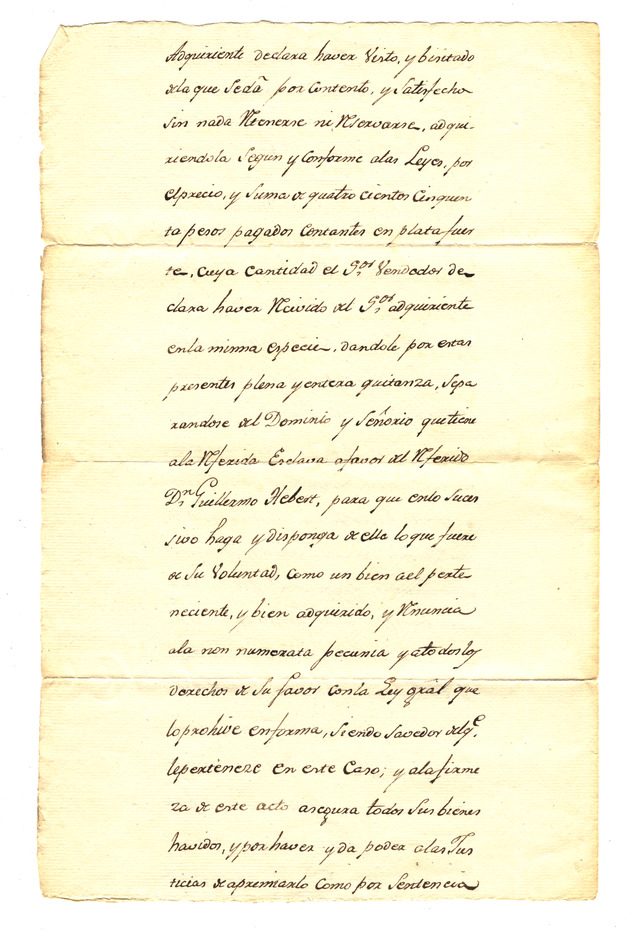 Adquiriente declara haver Visto, y bisitado
dela que se dâ por Contento, y Satisfecho
sin nada Retenerse ni Reservarse, adqui-
riendola Segun y Conforme alas Leyes, por
el precio, y suma de quatro cientos Cinquen
ta pesos pagados Contantes en plata fuer
te, cuya Cantidad el Sor. Vendedor de-
clara haver Recivido del Sor. adquiriente
en la misma especie, dandole por estas
presentes plena y entera quitanza, sepa
randose del Dominio y Señorio que tiene
ala Referida Esclava afavor del Referido
Dn. Guillermo Hebert, para que enlo suces
sivo haga y disponga de ella lo que fuere
de Su Voluntad, como un bien ael perte-
neciente, y bien adquirido, y Renuncia
ala non numerata pecunia y atodos los
derechos de Su favor Conla Ley gral que
lo prohive en forma, siendo savedor delqe.
le perteneze en este Caso; y ala firme
za de este acto asegura todos Sus bienes
havidos, y por haver y da poder alas Jus
ticias de apremiarlo Como por Sentencia